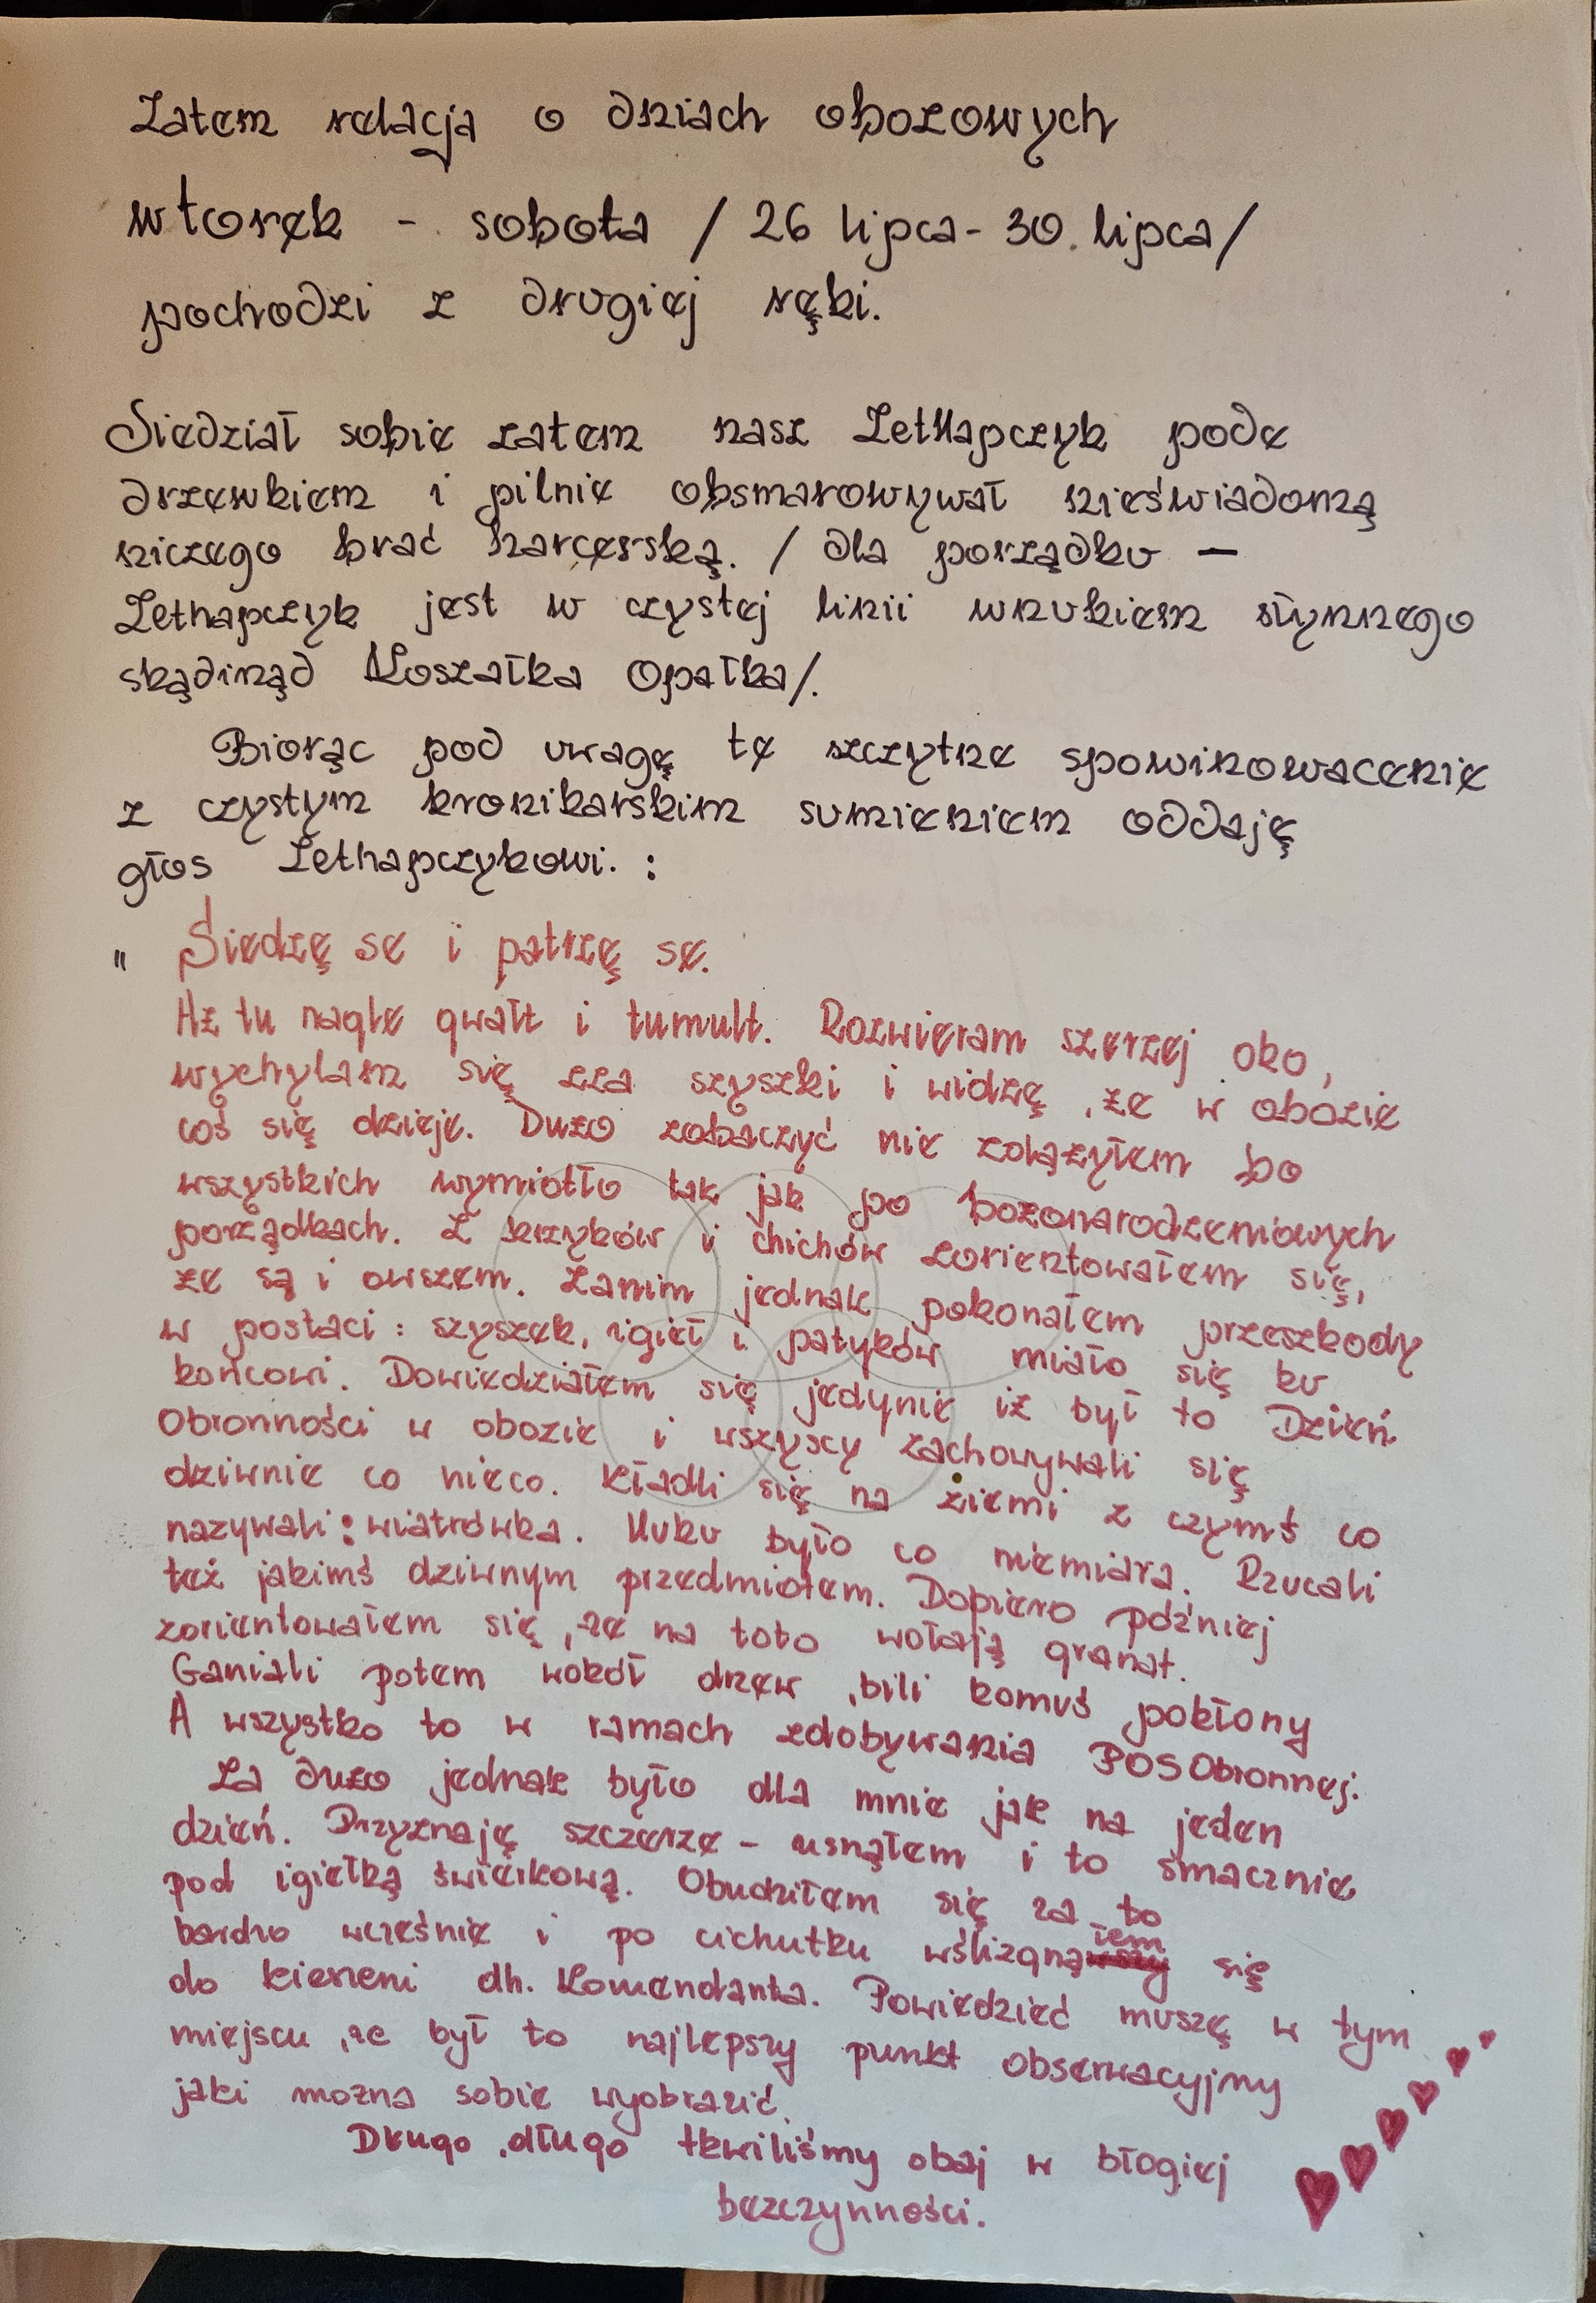 Zatem relacja o dniach obozowych
wtorek - sobota / 26 lipca - 30. lipca/
pochodzi z drugiej ręki.
Siedział sobie zatem nasz Zethapczyk pode
drzewkiem i pilnie obsmarowywał nieświadomą
niczego brać harcerską. / dla porządku —
Zethapczyk jest w czystej linii wnukiem słynnego
skądinąd Koszałka Opałka/.
Biorąc pod uwagę tę szczytne spowinowacenie
z czystym kronikarskim sumieniem oddaję
głos Zethapczykowi. :
" Siedzę se i patrzę se.
Aż tu nagle gwałt i tumult. Rozwieram szerzej oko,
wychylam się zza szyszki i widzę, że w obozie
coś się dzieje. Dużo zobaczyć nie zdążyłem bo
wszystkich wymiotło tak jak po bożonarodzeniowych
porządkach. Z krzyków i chichów zorientowałem się,
że są i owszem. Zanim jednak pokonałem przeszkody
w postaci: szyszek, igieł i patyków miało się ku
końcowi. Dowiedziałem się jedynie iż był to Dzień
Obronności w obozie i wszyscy zachowywali się
dziwnie co nieco. Kładli się na ziemi z czymś co
nazywali: wiatrówka. Huku było co niemiara. Rzucali
też jakimś dziwnym przedmiotem. Dopiero później
zorientowałem się, że na toto wołają granat.
Ganiali potem wokół drzew, bili komuś pokłony
A wszystko to w ramach zdobywania POS Obronnej.
Za dużo jednak było dla mnie jak na jeden
dzień. Przyznaję szczerze - usnąłem i to smacznie
pod igiełką świerkową. Obudziłem się za to
bardzo wcześnie i po cichutku wślizgnąłem się
do kieszeni dh. Komendanta. Powiedzieć muszę w tym
miejscu, że był to najlepszy punkt obserwacyjny
jaki można sobie wyobrazić.
Długo, długo tkwiliśmy obaj w błogiej
bezczynności.